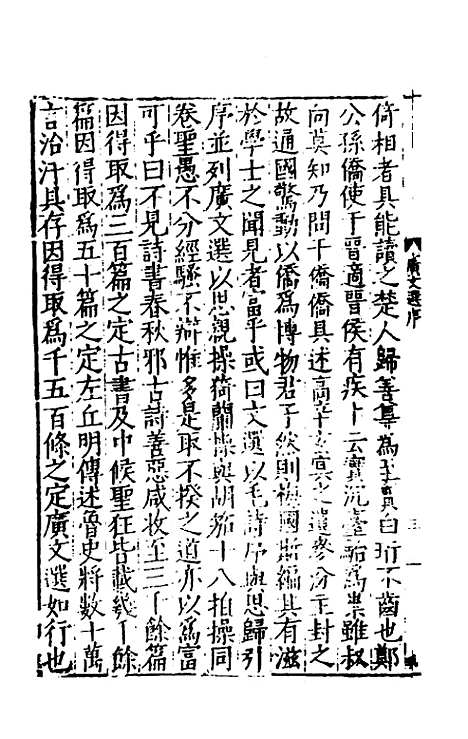 倚相者具能讀之楚人歸善尊為至寶白珩不齒也鄭
公孫僑使于晉適晉侯有疾卜云實沉臺駘為祟雖叔
向莫知乃問于僑僑具述高辛玄冥之遺參汾主封之
故通國驚動以僑為博物君子然則梗國斯編其有滋
於學士之聞見者富乎或曰文選以毛詩序與思歸引
序並列廣文選以思親操猗蘭操與胡笳十八拍操同
卷聖愚不分經騷不辯惟多是取不揆之道亦以為富
可乎曰不見詩書春秋邪古詩善惡咸收至三千餘篇
因得取為三百篇之定古書及中候聖狂皆載幾千餘
篇因得取為五十篇之定左丘明傳述魯史將數十萬
言治汗具存因得取為千五百條之定廣文選如行也
廣文選序
三